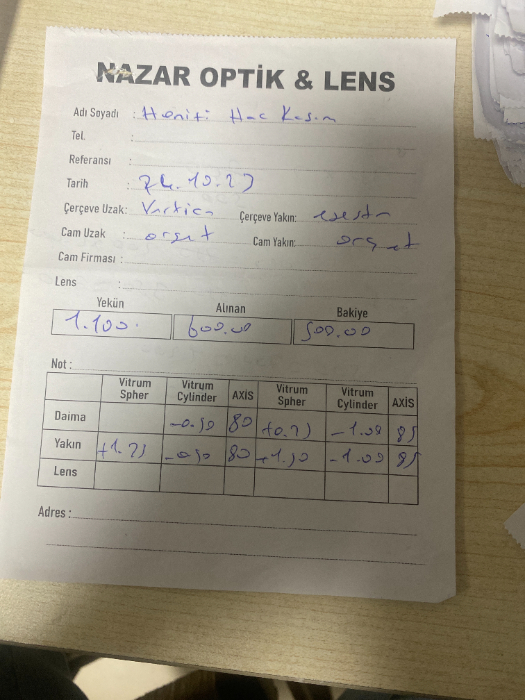 NAZAR OPTİK & LENS
Adı Soyadı : Hac Kasım
Tel. :
Referansı :
Tarih : 24.10.23
Çerçeve Uzak: Çerçeve Yakın:
Cam Uzak : orgat Cam Yakın: orgat
Cam Firması :
Lens :
Yekün Alınan Bakiye
1.100. 600.00 500.00
Not :
Vitrum Spher Vitrum Cylinder AXİS Vitrum Spher Vitrum Cylinder AXİS
Daima -0.50 80 +0.25 -1.00 85
Yakın +1.25 -0.50 80 +1.50 -1.00 85
Lens
Adres :